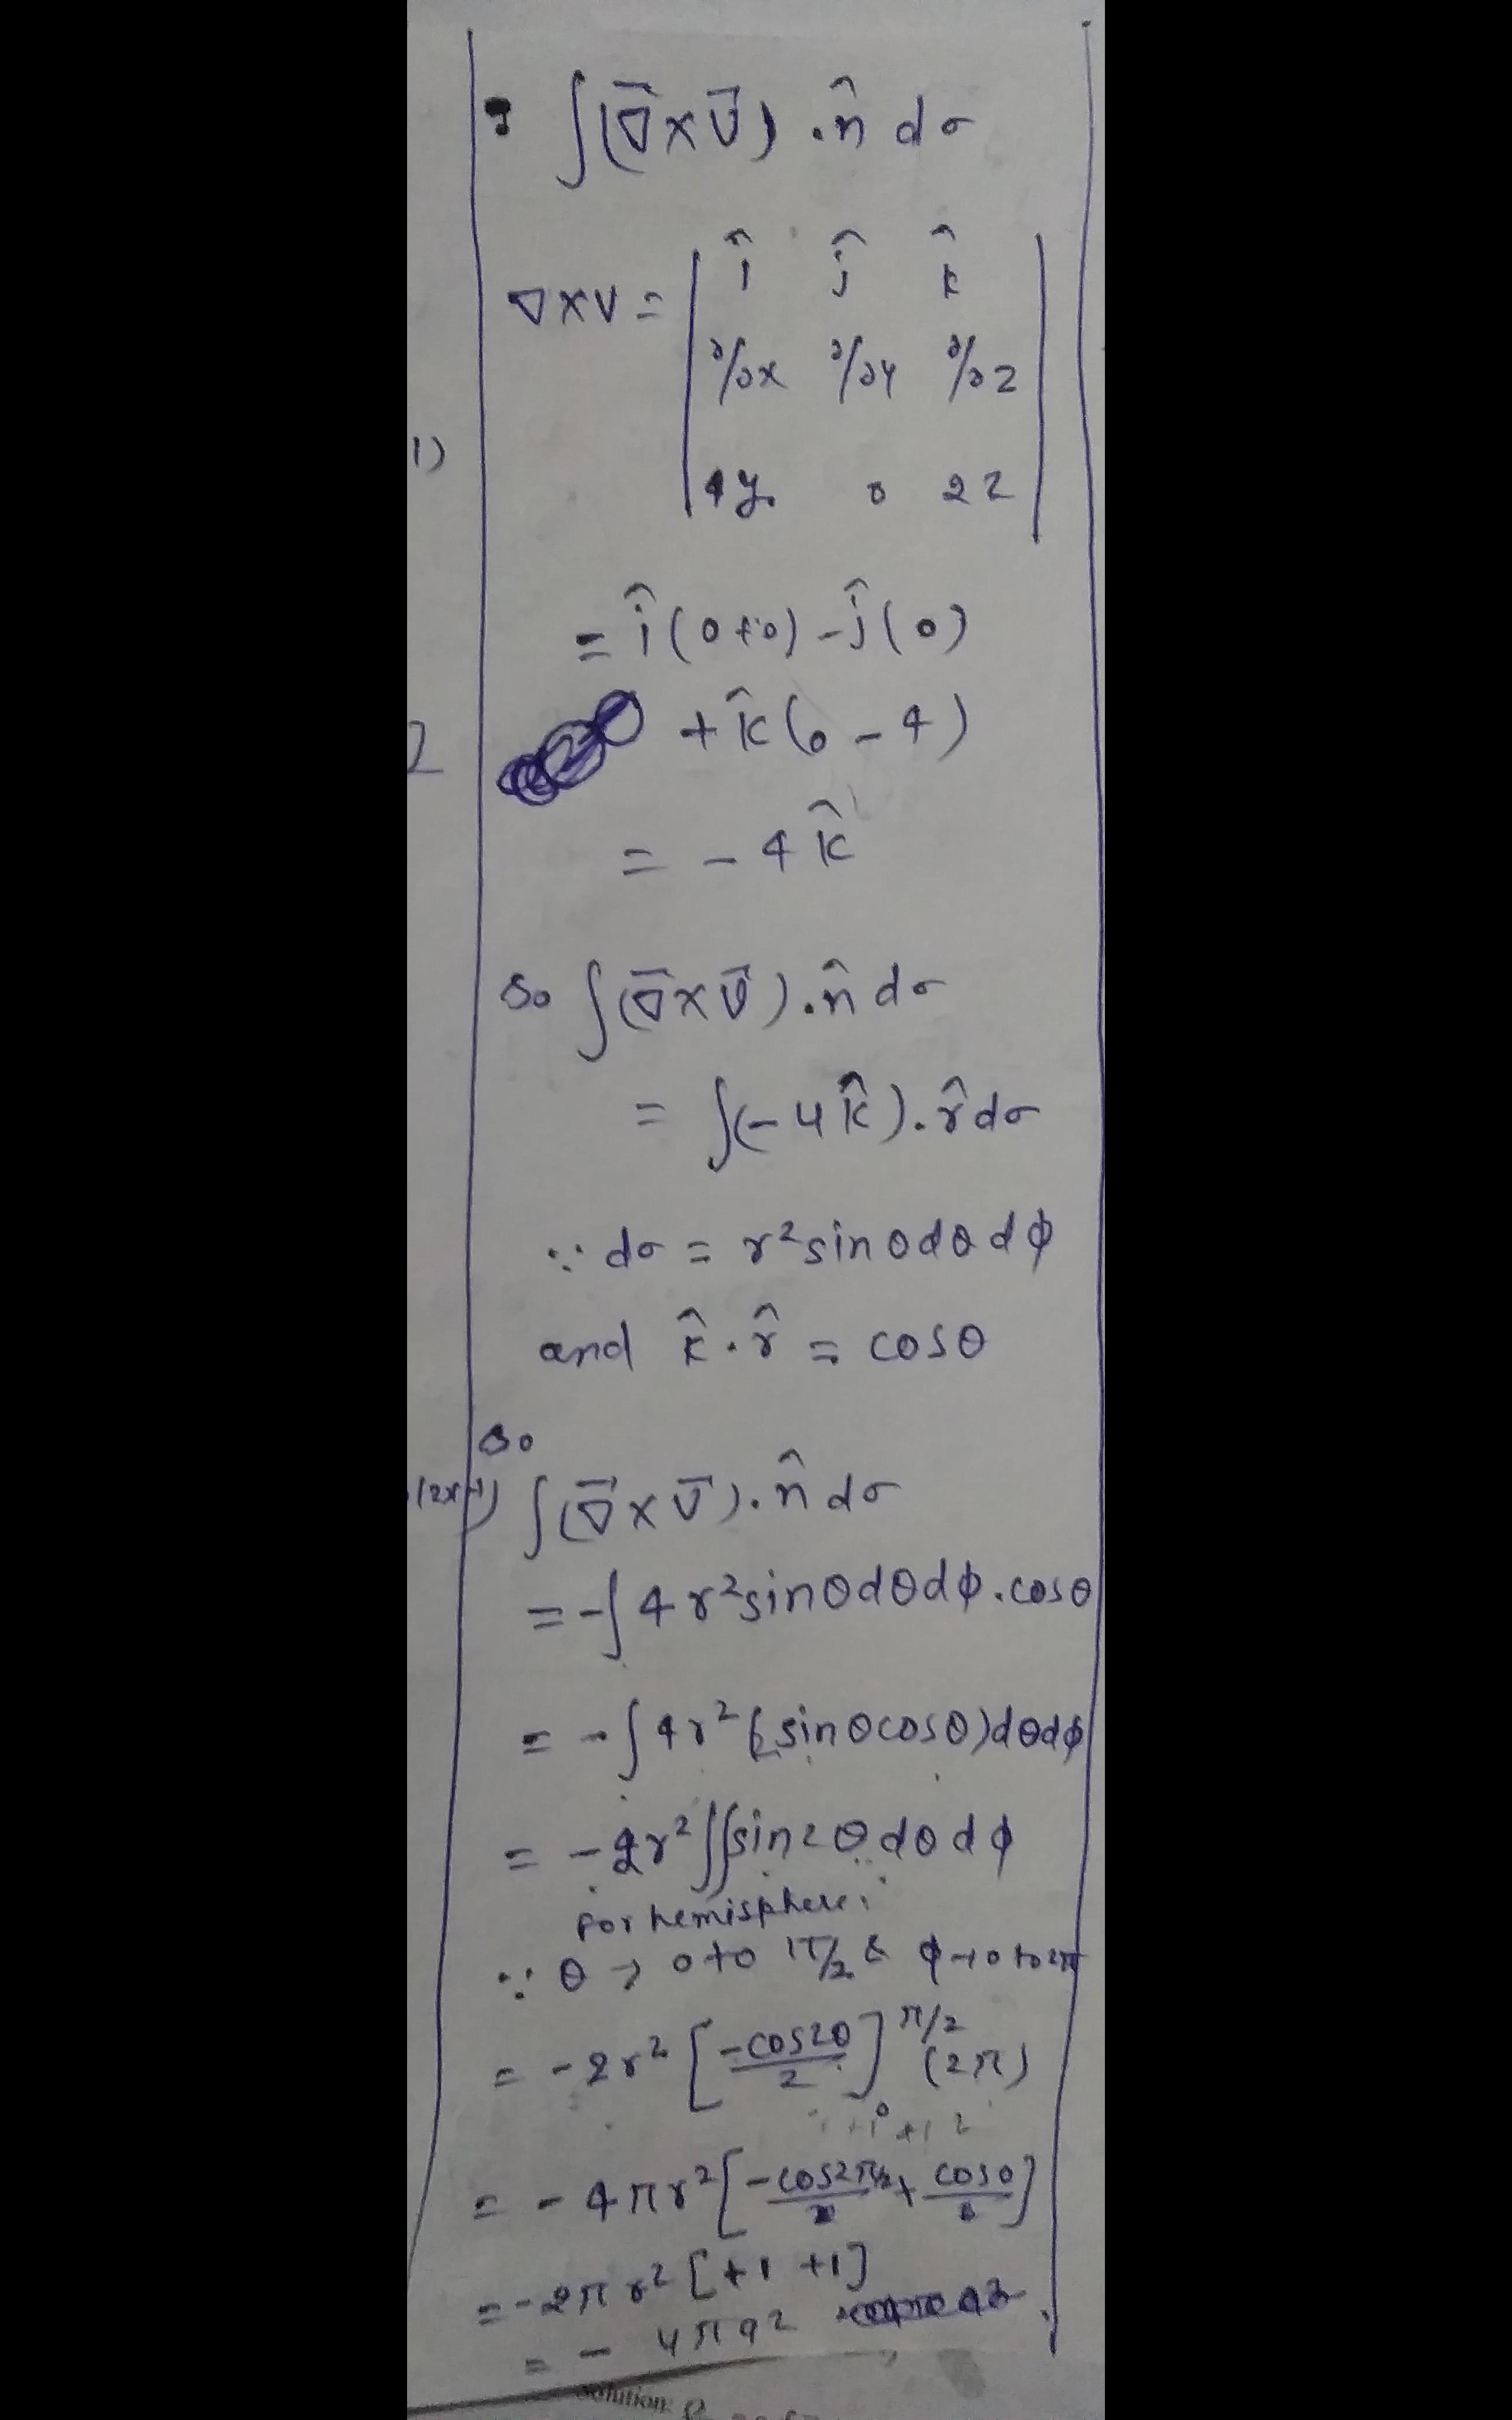 ∫(∇̄×V̄).n̂ dσ
∇×V = | î ĵ k̂ |
| ∂/∂x ∂/∂y ∂/∂z |
1)
| 4y 0 2z |
= î(0+0) -ĵ(0)
2 + k̂(0-4)
= -4k̂
So ∫(∇̄×V̄).n̂ dσ
= ∫(-4k̂).r̂ dσ
∵ dσ = r²sinθdθdϕ
and k̂.r̂ = cosθ
So
(2x-1) ∫(∇̄×V̄).n̂ dσ
= -∫4r²sinθdθdϕ.cosθ
= -∫4r²(sinθcosθ)dθdϕ
= -2r²∫∫sin2θdθdϕ
for hemisphere,
∵ θ → 0 to π/2 & ϕ → 0 to 2π
= -2r² [-cos2θ/2]₀^π/2 (2π)
= -4πr² [-cos2π/2/2 + cos0/2]
= -2πr² [+1 +1]
= -4πa²
Solution: